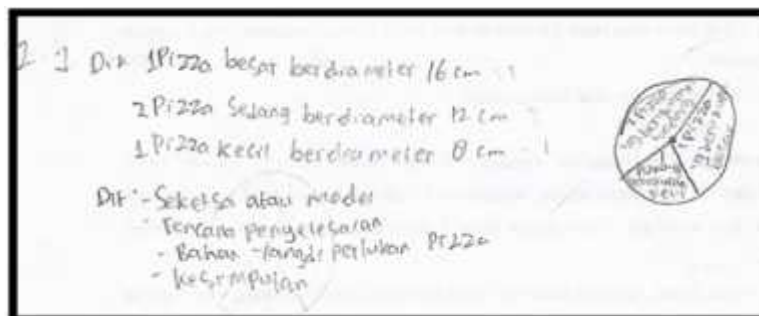 2 ] Dik 1 Pizza besar berdiameter 16 cm
2 Pizza Sedang berdiameter 12 cm
1 Pizza kecil berdiameter 8 cm
Dit : - Sketsa atau model
- rencana penyelesaian
- Bahan yang di perlukan Pizza
- kesimpulan
1 Pizza
yg berukuran
besar
2 Pizza
yg berukuran
sedang